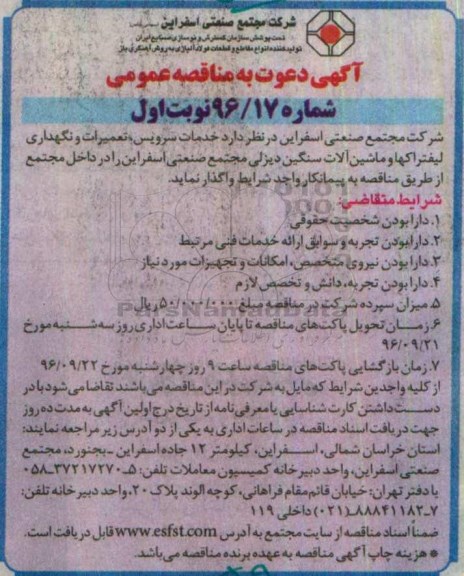 شرکت مجتمع صنعتی اسفراین (سهامی خاص)
تحت پوشش سازمان گسترش و نوسازی صنایع ایران
تولیدکننده انواع مقاطع و قطعات فولاد آلیاژی به روش آهنگری باز
آگهی دعوت به مناقصه عمومی
شماره ۹۶/۱۷ نوبت اول
شرکت مجتمع صنعتی اسفراین در نظر دارد خدمات سرویس، تعمیرات و نگهداری
لیفتراکها و ماشین آلات سنگین دیزلی مجتمع صنعتی اسفراین را در داخل مجتمع
از طریق مناقصه به پیمانکار واجد شرایط واگذار نماید.
شرایط متقاضی:
۱. دارا بودن شخصیت حقوقی
۲. دارا بودن تجربه و سوابق ارائه خدمات فنی مرتبط
۳. دارا بودن نیروی متخصص، امکانات و تجهیزات مورد نیاز
۴. دارا بودن تجربه، دانش و تخصص لازم
۵. میزان سپرده شرکت در مناقصه مبلغ ۵۰/۰۰۰/۰۰۰ ریال
۶. زمان تحویل پاکت‌های مناقصه تا پایان ساعت اداری روز سه شنبه مورخ
۹۶/۰۹/۲۱
۷. زمان بازگشایی پاکت‌های مناقصه ساعت ۹ روز چهارشنبه مورخ ۹۶/۰۹/۲۲
از کلیه واجدین شرایط که مایل به شرکت در این مناقصه می‌باشند تقاضا می‌شود با در
دست داشتن کارت شناسایی یا معرفی‌نامه از تاریخ درج اولین آگهی به مدت ده روز
جهت دریافت اسناد مناقصه در ساعات اداری به یکی از دو آدرس زیر مراجعه نمایند:
استان خراسان شمالی، اسفراین، کیلومتر ۱۲ جاده اسفراین - بجنورد، مجتمع
صنعتی اسفراین، واحد دبیرخانه کمیسیون معاملات تلفن: ۵-۳۷۲۱۷۲۷۰-۰۵۸
یا دفتر تهران: خیابان قائم‌مقام فراهانی، کوچه الوند پلاک ۲۰، واحد دبیرخانه تلفن:
۷-۸۸۸۴۱۱۸۲-(۰۲۱) داخلی ۱۱۹
ضمناً اسناد مناقصه از سایت مجتمع به آدرس www.esfst.com قابل دریافت است.
* هزینه چاپ آگهی مناقصه به عهده برنده مناقصه می‌باشد.
ParsNamadData